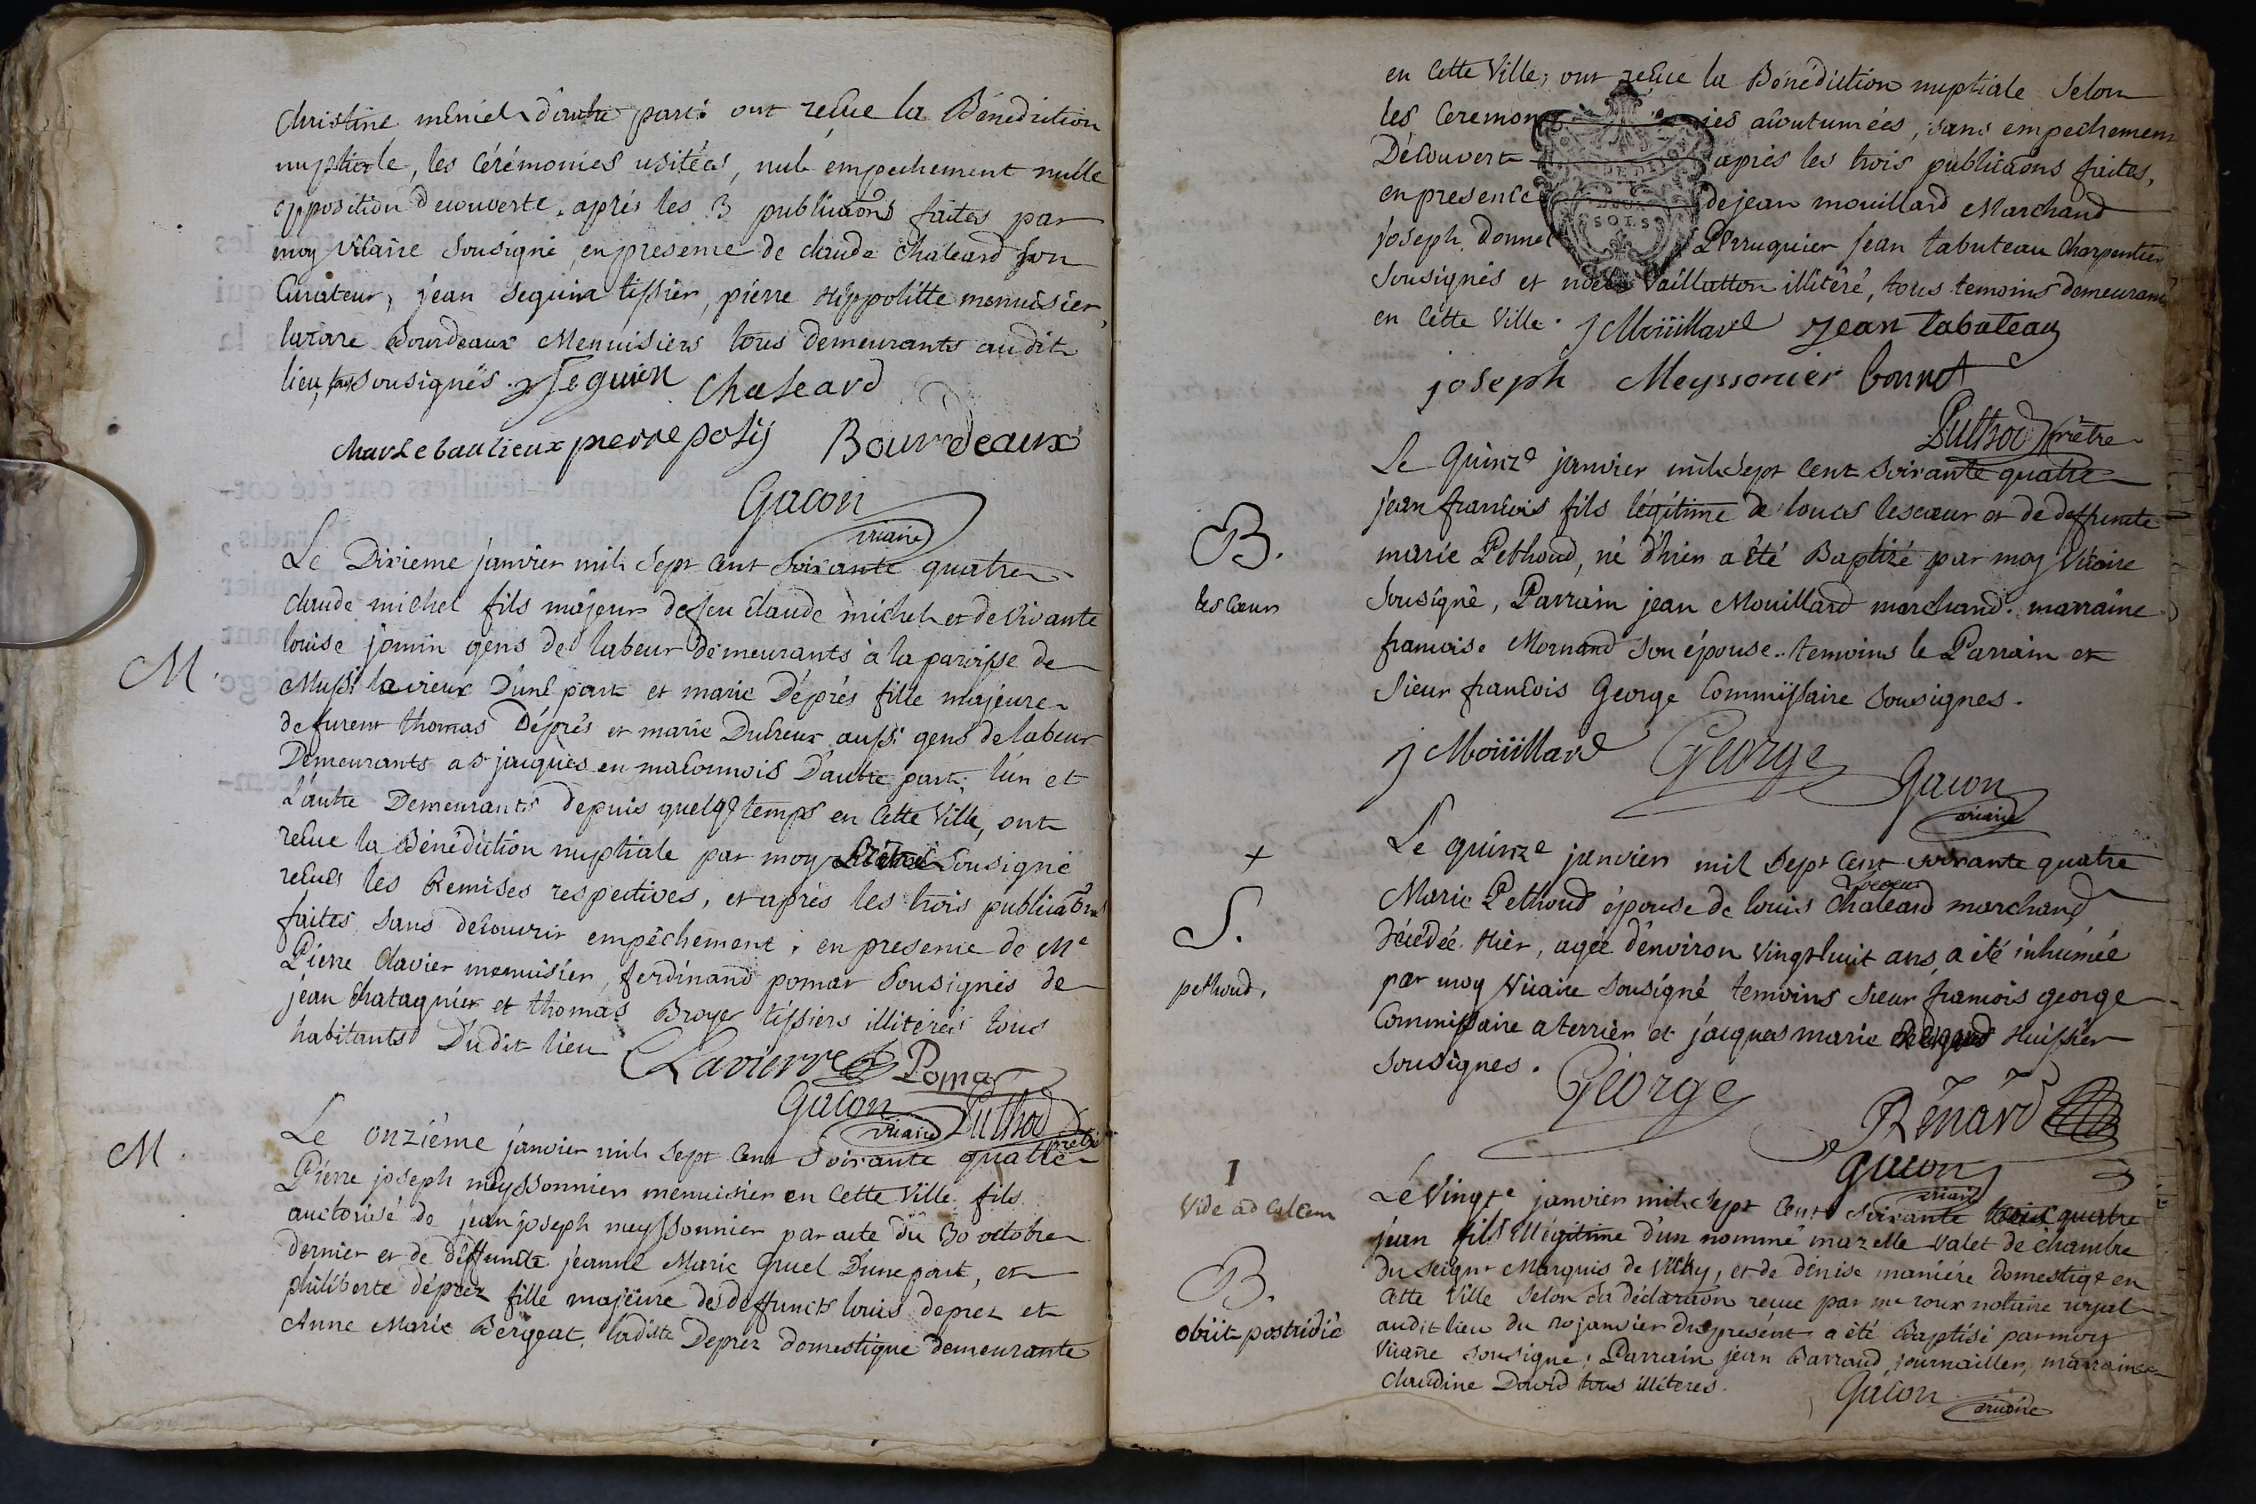 Christine meniel d'autre part ont reçue la Bénédiction
nuptiale, les Cérémonies usitées, nul empechement nulle
opposition decouverte, aprés les 3 publicaõns faites par
moy Vicaire Sousigné, en presence de claude Chaleard son
Curateur, jean Seguin tissier, pierre Hippolitte menuisier,
lazare Bourdeaux Menuisiers tous demeurants audit
lieu, sousignés. J Seguin Chaleard
Charle baulieux pierre poliy Bourdeaux
Gacon
vicaire
Le Dixieme janvier mil Sept Cent Soixante quatre
M.
Claude michel fils majeur de feu Claude michel et de vivante
louise jomin gens de labeur demeurants à la paroisse de
Mussi la vieux D'une part et marie Déprés fille majeure
de furent thomas Déprés et marie Ducreux aussi gens de labeur
Demeurants a St jacques en maconnois D'autre part, l'un et
L'autre Demeurants depuis quelqe temps en Cette Ville, ont
recue la Bénédiction nuptiale par moy Sousigné
reçues les Remises respectives, et aprés les trois publicaõns
faites Sans découvrir empêchement, en presence de Me
Pierre Clavier menuisier, ferdinand pomar Sousignés de
jean Chatagnier et thomas Broyer tissiers illitérés tous
habitants Dudit lieu
Lavierre Pomar
Gacon vicaire Puthod prêtre
M.
Le onziéme janvier mil Sept Cent Soixante quatre
Pierre joseph meyssonnier menuisier en Cette Ville fils
auctorisé de jean joseph meyssonnier par acte du 30 octobre
dernier et de deffuncte jeanne Marie Gruel D'une part, et
philiberte déprez fille majeure de deffuncts louis deprez et
Anne Marie Bergeat, laditte Deprez domestique demeurante
en Cette Ville, ont reçue la Bénédiction nuptiale Selon
les Ceremonies acoutumées, sans empechement
Découvert aprés les trois publicaõns faites,
en presence de jean mouillard Marchand
joseph Bonnet Perruquier jean tabuteau Charpentier
Sousignés et noel Vaillatton illitéré, tous temoins demeurants
en Cette Ville. J Moüillard jean tabuteau
joseph Meyssonier bonnet
Puthod prêtre
Le Quinze janvier mil Sept Cent Soixante quatre
B.
les Cœur
jean francois fils légitime de louis lescœur et de deffuncte
marie Pethoud, né d'hier a été Baptizé par moy Vicaire
Sousigné, Parrain jean Mouillard marchand. marraine
francoise Mornand son épouse. temoins le Parrain et
Sieur francois George Commissaire sousignes.
J Moüillard George Gacon
vicaire
+
S.
pethoud.
Le quinze janvier mil Sept Cent Soixante quatre
Lescœur
Marie Pethoud épouse de louis Chaleard marchand
décédée Hier, agée d'environ Vingt huit ans, a été inhumée
par moy Vicaire Sousigné temoins Sieur francois george
Commissaire a terrier et jacques marie Huissier
Sousignes.
George Rénard
Gacon
vicaire
I
Vide ad Calcem
B.
obiit postridie
Le Vingte janvier mil Sept Cent Soixante trois quatre
jean fils illégitime d'un nommé mazelle Valet de Chambre
Du Seignr Marquis de Vichy, et de dénise maniére domestiqe en
Cette Ville Selon sa déclaraõn reçue par me roux notaire royal
audit lieu du 20 janvier du présent a été Baptisé par moy
Vicaire sousigné, Parrain jean Barraud journailler, marraine
Claudine David tous illiteres.
Gacon vicaire